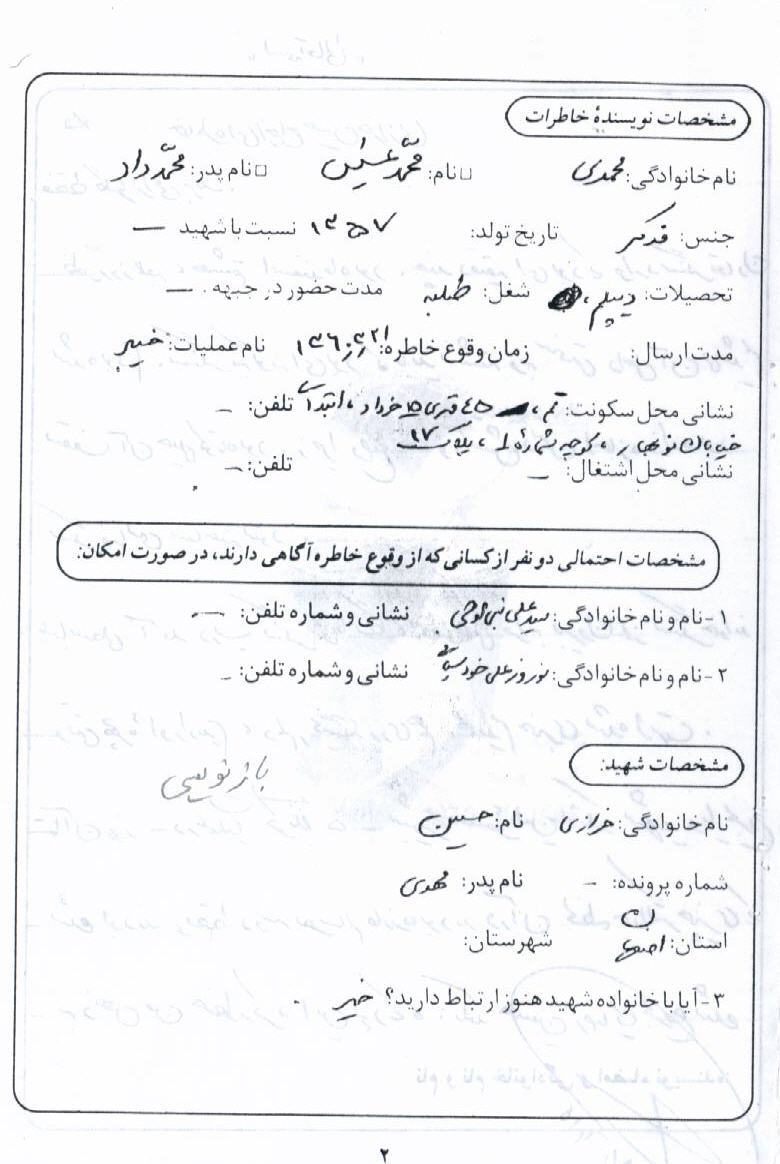 مشخصات نویسندهٔ خاطرات
نام خانوادگی: محمدی □نام: محمّد □نام پدر: محمّد داد
جنس: تاریخ تولد: ۱۳۵۷ نسبت با شهید —
تحصیلات: دیپلم، شغل: طلبه مدت حضور در جبهه. —
مدت ارسال: زمان وقوع خاطره: نام عملیات: خیبر
نشانی محل سکونت: قم، ۴۵ متری ۱۵ خرداد، ابتدای تلفن: –
خیابان نوبهار، کوچه شمارهٔ ۱، پلاک ۱۷
نشانی محل اشتغال: – تلفن: –
مشخصات احتمالی دو نفر از کسانی که از وقوع خاطره آگاهی دارند، در صورت امکان:
۱- نام و نام خانوادگی: سید علی نشانی و شماره تلفن: —
۲- نام و نام خانوادگی: نوروز علی نشانی و شماره تلفن: –
مشخصات شهید:
بازنویسی
نام خانوادگی: خرازی نام: حسین
شماره پرونده: – نام پدر: مهدی
استان: اصفهان شهرستان:
۳- آیا با خانواده شهید هنوز ارتباط دارید؟ خیر
۲